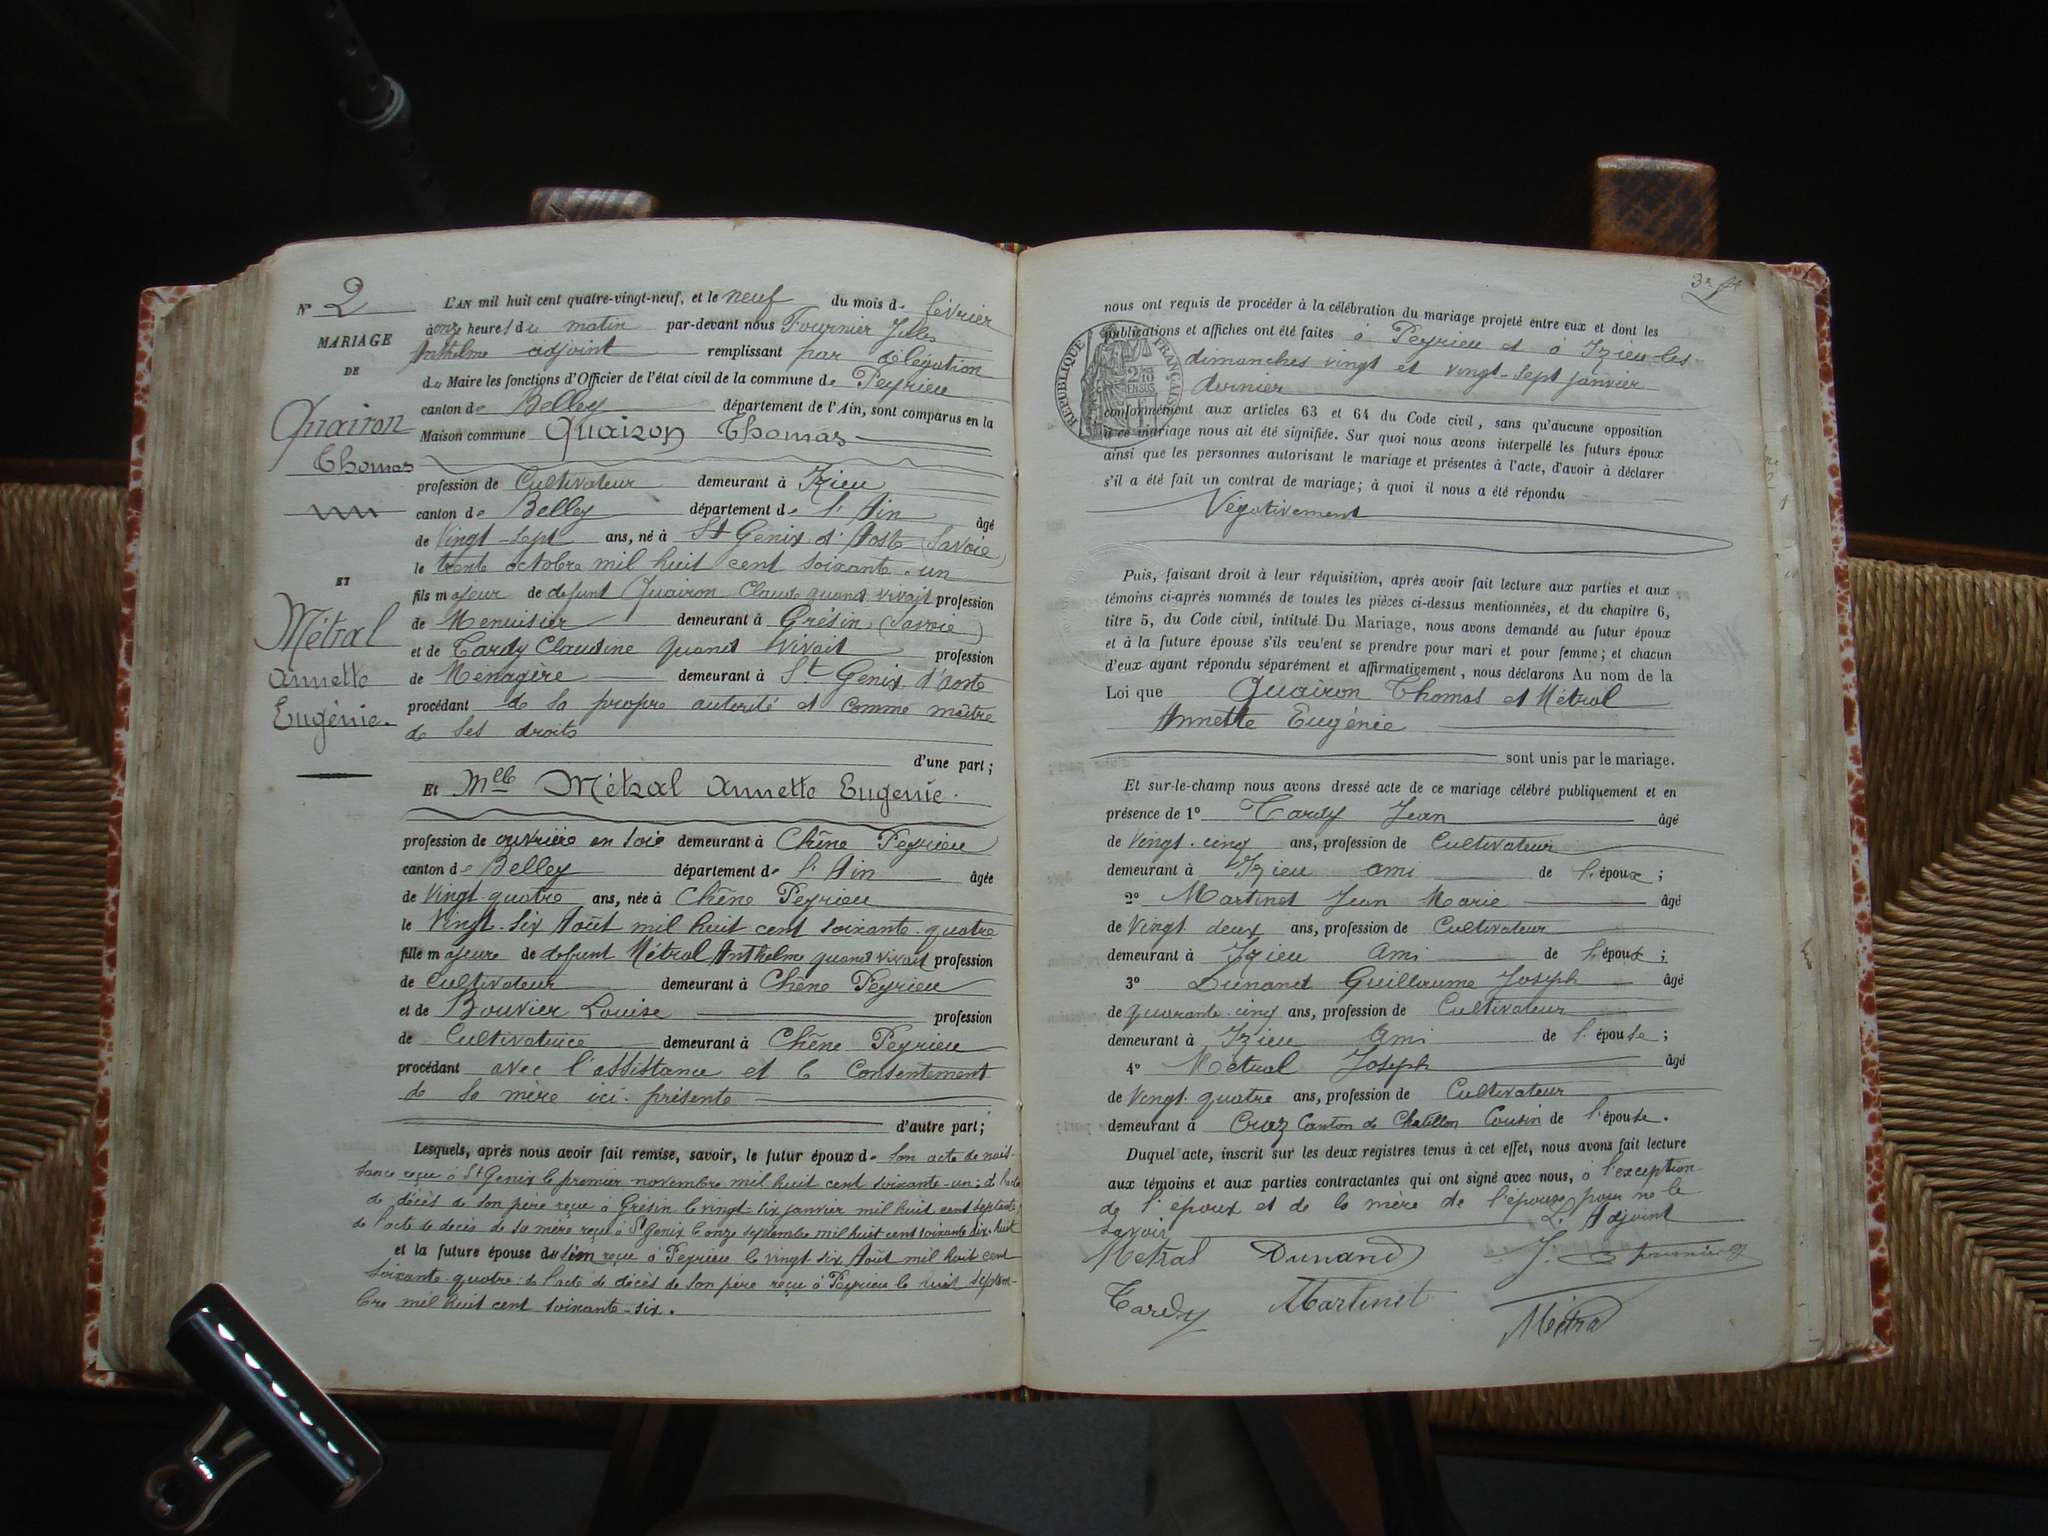 N° 2
MARIAGE
DE
Quairon
Thomas
ET
Métral
Annette
Eugénie.
L'AN mil huit cent quatre-vingt-neuf, et le neuf du mois de février
à onze heures du matin par-devant nous Fournier Jules
Anthelme adjoint remplissant par délégation
du Maire les fonctions d'Officier de l'état civil de la commune de Peyrieu
canton de Belley département de l'Ain, sont comparus en la
Maison commune Quairon Thomas
profession de Cultivateur demeurant à Izieu
canton de Belley département de l'Ain âgé
de Vingt-sept ans, né à St Genix d'Aoste (Savoie)
le trente octobre mil huit cent soixante-un
fils majeur de defunt Quairon Claude quand vivait profession
de Menuisier demeurant à Grésin (Savoie)
et de Tardy Claudine quand vivait profession
de Ménagère demeurant à St Genix d'aoste
procédant de sa propre autorité et comme maître
de ses droits
d'une part ;
Et Melle Métral Annette Eugénie.
profession de ouvrière en soie demeurant à Chêne Peyrieu
canton de Belley département de l'Ain âgée
de Vingt-quatre ans, née à Chêne Peyrieu
le Vingt-six Août mil huit cent soixante-quatre
fille majeure de defunt Métral Anthelme quand vivait profession
de Cultivateur demeurant à Chêne Peyrieu
et de Bouvier Louise profession
de Cultivatrice demeurant à Chêne Peyrieu
procédant avec l'assistance et le Consentement
de sa mère ici présente
d'autre part ;
Lesquels, après nous avoir fait remise, savoir, le futur époux de son acte de nais-
sance reçu à St Genix le premier novembre mil huit cent soixante-un ; de l'acte
de décès de son père reçu à Grésin le vingt-six janvier mil huit cent septante
de l'acte de décès de sa mère reçu à St Genix le onze septembre mil huit cent soixante dix-huit
et la future épouse du sien reçu à Peyrieu le vingt six Août mil huit cent
soixante-quatre ; de l'acte de décès de son père reçu à Peyrieu le huit septem-
bre mil huit cent soixante-six.
nous ont requis de procéder à la célébration du mariage projeté entre eux et dont les
publications et affiches ont été faites à Peyrieu et à Izieu les
dimanches vingt et vingt-sept janvier
dernier
RÉPUBLIQUE FRANÇAISE
conformément aux articles 63 et 64 du Code civil, sans qu'aucune opposition
à ce mariage nous ait été signifiée. Sur quoi nous avons interpellé les futurs époux
ainsi que les personnes autorisant le mariage et présentes à l'acte, d'avoir à déclarer
s'il a été fait un contrat de mariage ; à quoi il nous a été répondu
Négativement
Puis, faisant droit à leur réquisition, après avoir fait lecture aux parties et aux
témoins ci-après nommés de toutes les pièces ci-dessus mentionnées, et du chapitre 6,
titre 5, du Code civil, intitulé Du Mariage, nous avons demandé au futur époux
et à la future épouse s'ils veulent se prendre pour mari et pour femme ; et chacun
d'eux ayant répondu séparément et affirmativement, nous déclarons Au nom de la
Loi que Quairon Thomas et Métral
Annette Eugénie
sont unis par le mariage.
Et sur-le-champ nous avons dressé acte de ce mariage célébré publiquement et en
présence de 1° Tardy Jean âgé
de Vingt-cinq ans, profession de Cultivateur
demeurant à Izieu ami de l'époux ;
2° Martinet Jean Marie âgé
de Vingt deux ans, profession de Cultivateur
demeurant à Izieu Ami de l'époux ;
3° Dunand Guillaume Joseph âgé
de quarante-cinq ans, profession de Cultivateur
demeurant à Izieu Ami de l'épouse ;
4° Métral Joseph âgé
de Vingt-quatre ans, profession de Cultivateur
demeurant à Canton de Chatillon Cousin de l'épouse.
Duquel acte, inscrit sur les deux registres tenus à cet effet, nous avons fait lecture
aux témoins et aux parties contractantes qui ont signé avec nous, à l'exception
de l'époux et de la mère de l'épouse pour ne le
savoir
L'Adjoint
Métral Dunand J. Fournier
Tardy Martinet Métral